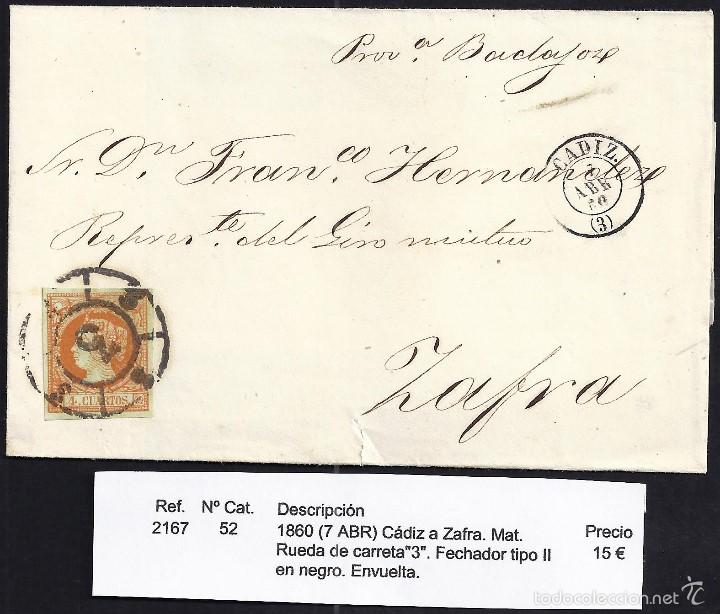 Prov.ª Badajoz
Sr. Dn. Fran.co Hernandez
CADIZ.
7
ABR
60
(3)
Repres.te del Giro mutuo
Zafra
4 CUARTOS
Ref. Nº Cat. Descripción
2167 52 1860 (7 ABR) Cádiz a Zafra. Mat. Precio
Rueda de carreta"3". Fechador tipo II 15 €
en negro. Envuelta.
todocoleccion.net